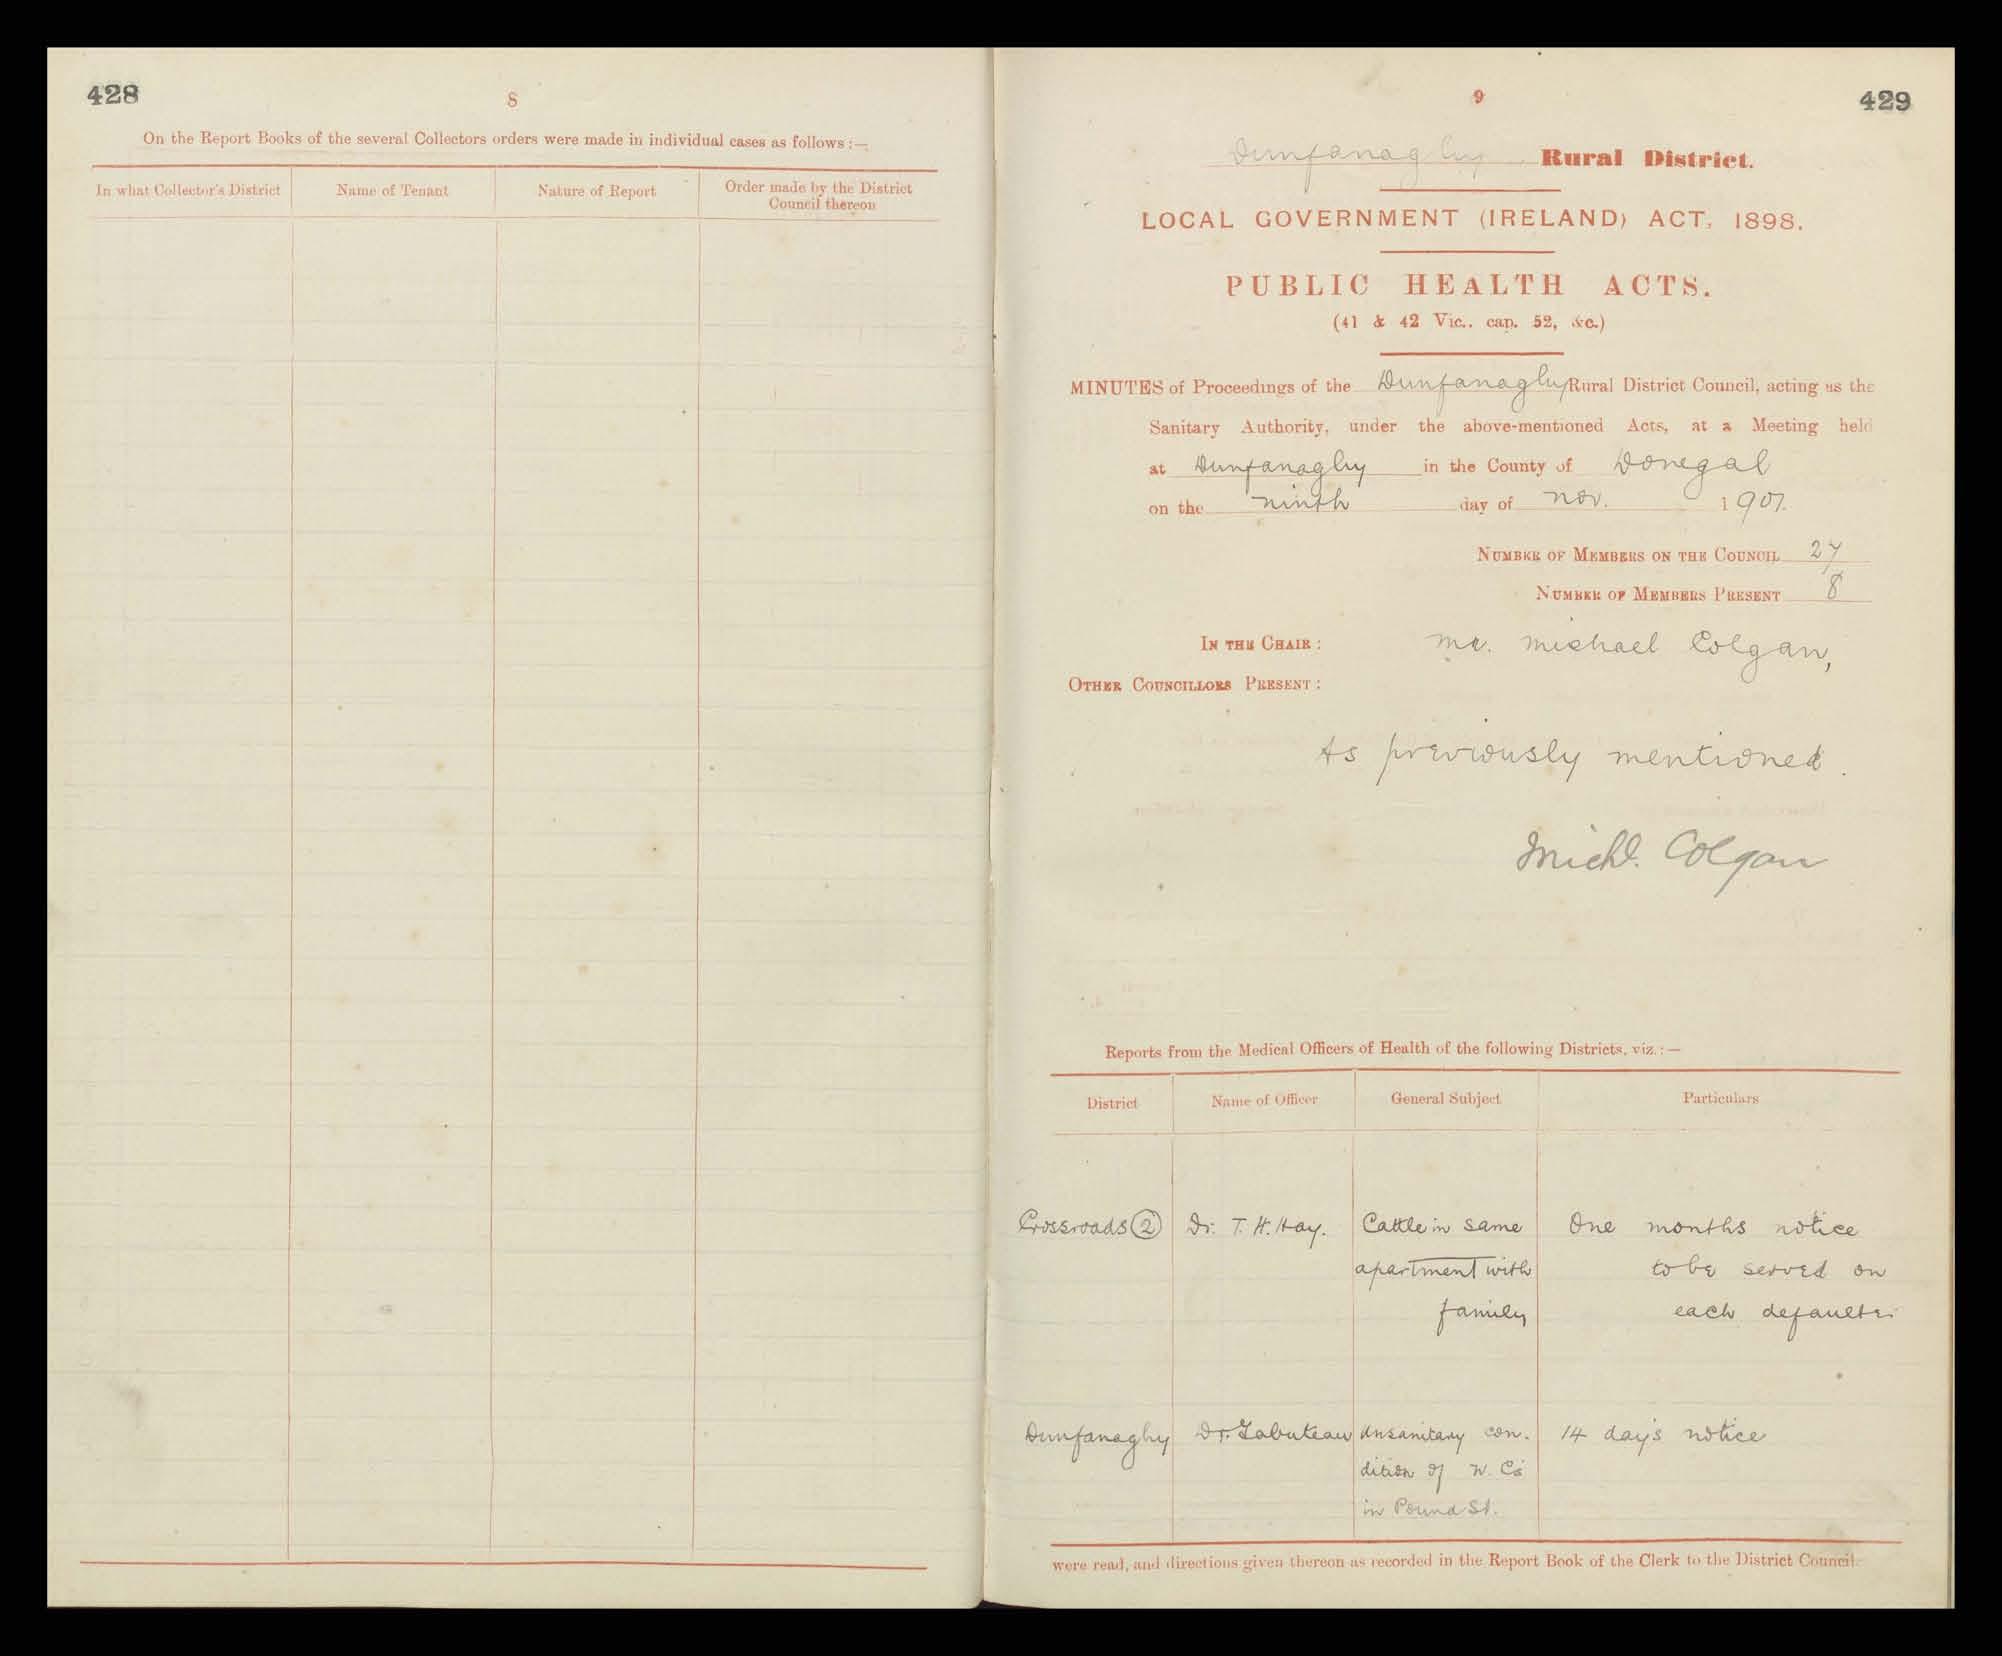 428
8
On the Report Books of the several Collectors orders were made in individual cases as follows :—
In what Collector's District
Name of Tenant
Nature of Report
Order made by the District
Council thereon
9
429
Dunfanaghy Rural District.
LOCAL GOVERNMENT (IRELAND) ACT, 1898.
PUBLIC HEALTH ACTS.
(41 & 42 Vic., cap. 52, &c.)
MINUTES of Proceedings of the Dunfanaghy Rural District Council, acting as the
Sanitary Authority, under the above-mentioned Acts, at a Meeting held
at Dunfanaghy in the County of Donegal
on the ninth day of Nov. 1907.
NUMBER OF MEMBERS ON THE COUNCIL 27
NUMBER OF MEMBERS PRESENT 8
IN THE CHAIR : Mr. Michael Colgan,
OTHER COUNCILLORS PRESENT :
As previously mentioned.
Michl. Colgan
Reports from the Medical Officers of Health of the following Districts, viz. :—
District
Name of Officer
General Subject
Particulars
Crossroads 2 Dr. T. H. Hay. Cattle in same One months notice
apartment with to be served on
family each defaulter
Dunfanaghy Dr. Labuteau Unsanitary con- 14 day's notice
dition of W. Cs
in Pound St.
were read, and directions given thereon as recorded in the Report Book of the Clerk to the District Council.